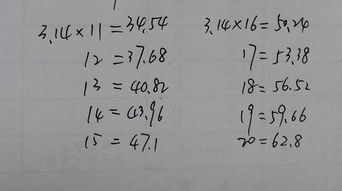 3.14×11=34.54
12=37.68
13=40.82
14=43.96
15=47.1
3.14×16=50.24
17=53.38
18=56.52
19=59.66
20=62.8